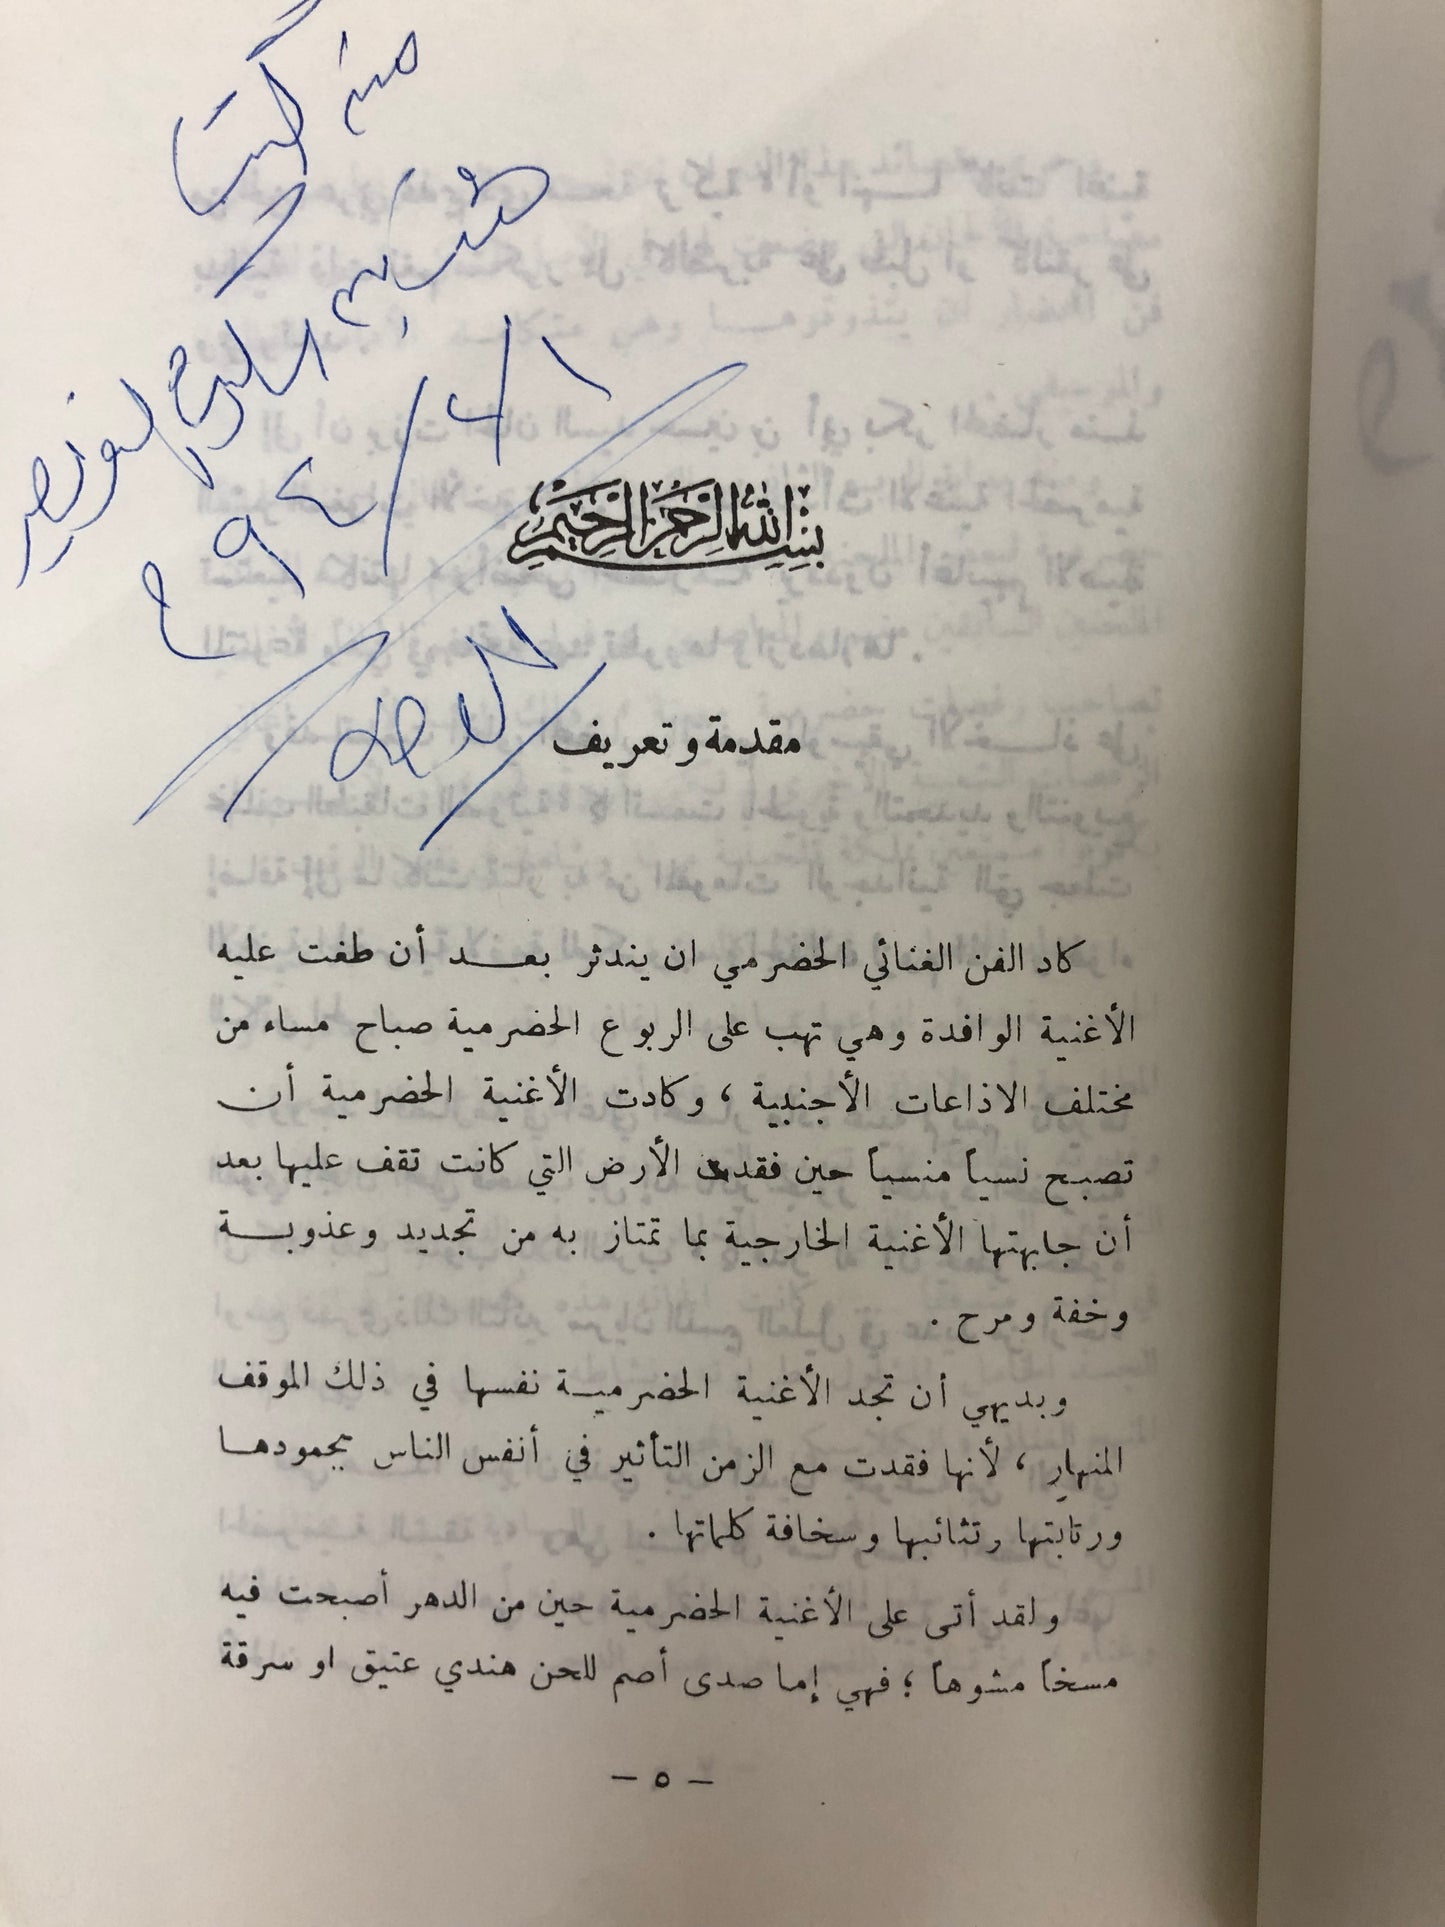 من كتب
٩٤/٤/١
بسم الله الرحمن الرحيم
مقدمة وتعريف
كاد الفن الغنائي الحضرمي ان يندثر بعــد أن طغت عليه
الأغنية الوافدة وهي تهب على الربوع الحضرمية صباح مساء من
مختلف الاذاعات الأجنبية ، وكادت الأغنية الحضرمية أن
تصبح نسياً منسياً حين فقدت الأرض التي كانت تقف عليها بعد
أن جابهتها الأغنية الخارجية بما تمتاز به من تجديد وعذوبــة
وخفة ومرح .
وبديهي أن تجد الأغنية الحضرميــة نفسها في ذلك الموقف
المنهار ، لأنها فقدت مع الزمن التأثير في أنفس الناس بجمودهــا
ورتابتها وتثائبها وسخافة كلماتها .
ولقد أتى على الأغنية الحضرمية حين من الدهر أصبحت فيه
مسخاً مشوهاً ؛ فهي إما صدى أصم للحن هندي عتيق او سرقة
– ٥ –